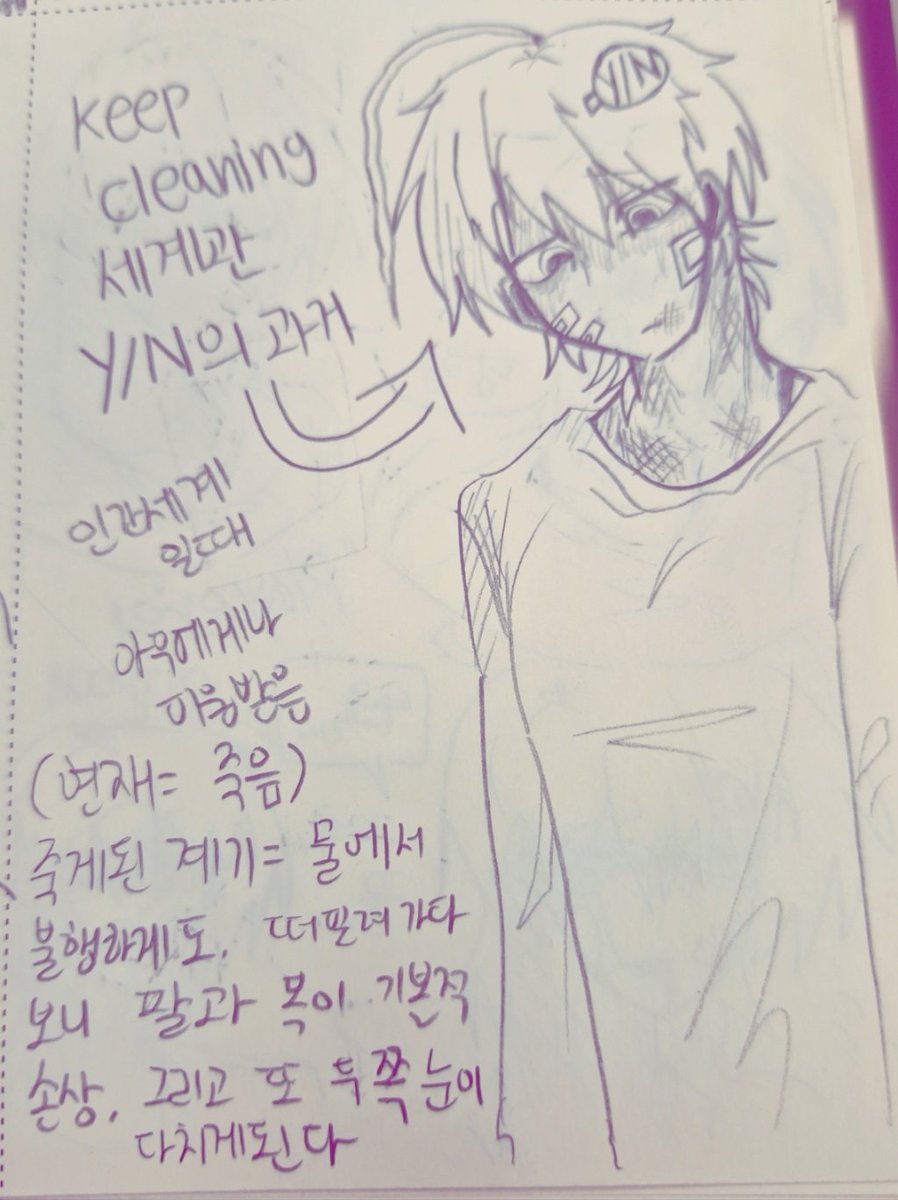 keep
cleaning
세계관
Y/N의 과거
Y/N
인간세계
일때
아우에게나
미움받음
(현재= 죽음)
죽게된 계기= 물에서
불행하게도. 떠밀려가다
보니 팔과 목이 기본적
손상. 그리고 또 두쪽눈이
다치게된다